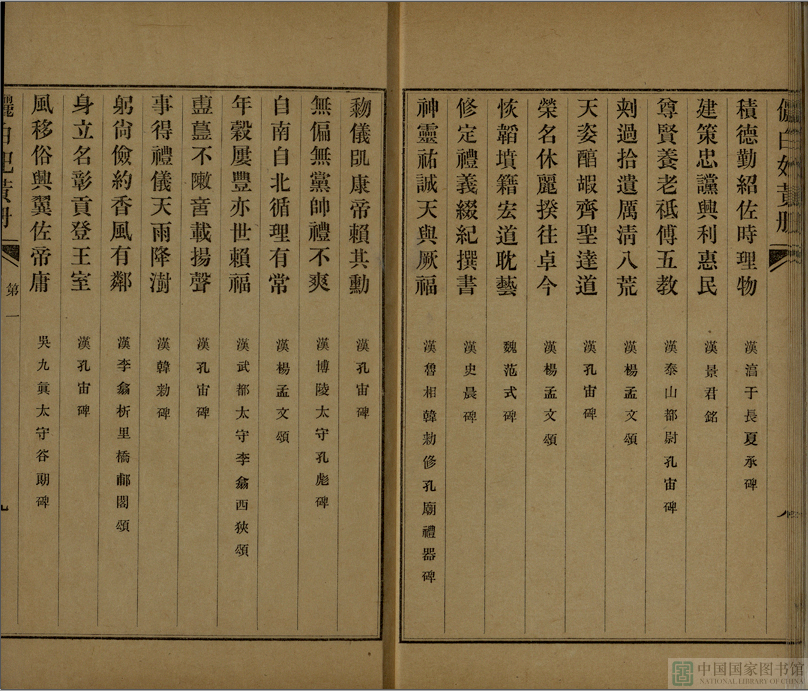 儷白妃黃冊
積德勤紹佐時理物 漢淳于長夏承碑
建策忠讜興利惠民 漢景君銘
尊賢養老祗傅五教 漢泰山都尉孔宙碑
刾過拾遺厲清八荒 漢楊孟文頌
天姿醕嘏齊聖達道 漢孔宙碑
榮名休麗揆往卓今 漢楊孟文頌
恢韜墳籍宏道耽藝 魏范式碑
修定禮義綴紀撰書 漢史晨碑
神靈祐誠天與厥福 漢魯相韓勑修孔廟禮器碑
八
儀康帝賴其勳 漢孔宙碑
無偏無黨帥禮不爽 漢博陵太守孔彪碑
自南自北循理有常 漢楊孟文頌
年穀屢豐亦世賴福 漢武都太守李翕西狹頌
不載揚聲 漢孔宙碑
事得禮儀天雨降澍 漢韓勑碑
躬尙儉約香風有鄰 漢李翕析里橋郙閣頌
身立名彰貢登王室 漢孔宙碑
風移俗興翼佐帝庸 吳九眞太守谷朗碑
儷白妃黃冊
第一
九
中国国家图书馆
NATIONAL LIBRARY OF CHINA